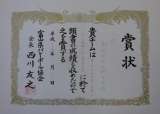 賞状
貴チームは
頭書の成績を収めたので
之を賞する
平成　年　月　日
富山県
会長 西川友之